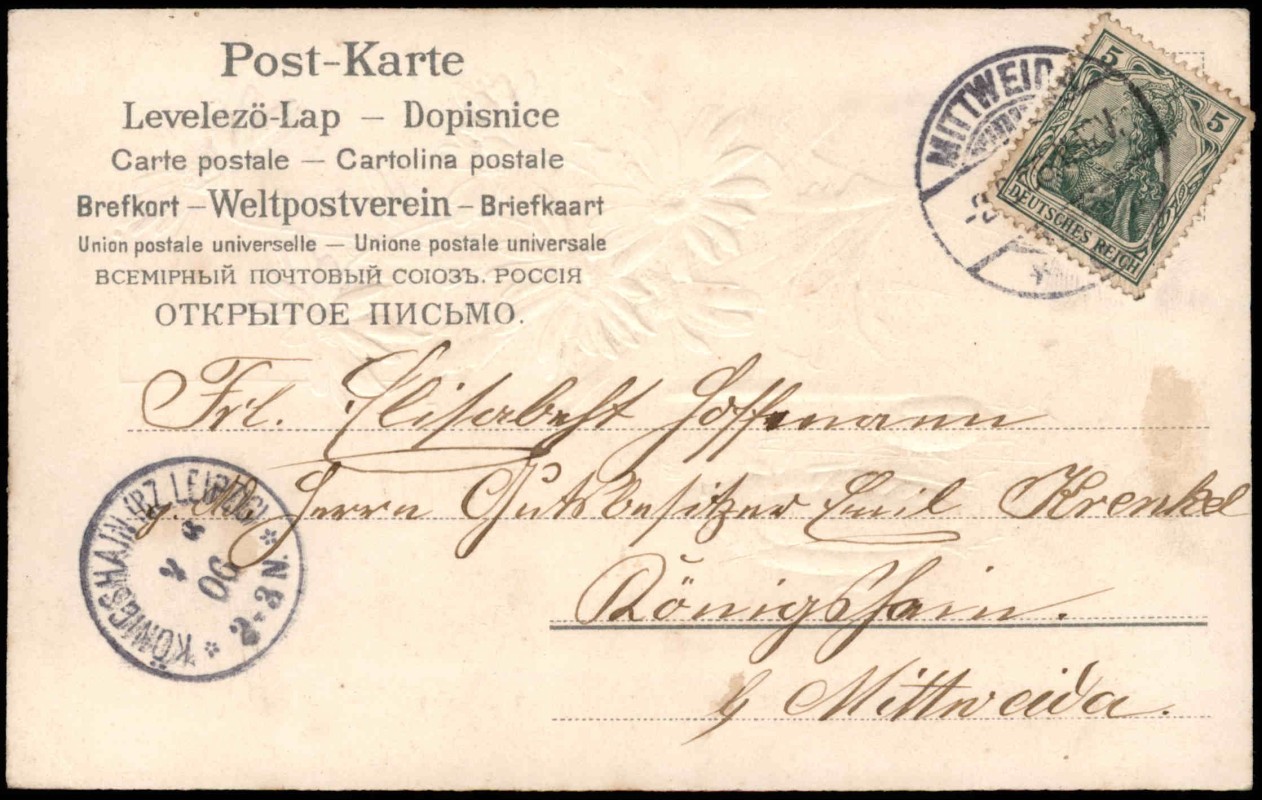 Post-Karte
Levelezö-Lap – Dopisnice
Carte postale – Cartolina postale
Brefkort – Weltpostverein – Briefkaart
Union postale universelle – Unione postale universale
ВСЕМІРНЫЙ ПОЧТОВЫЙ СОЮЗЪ. РОССІЯ
ОТКРЫТОЕ ПИСЬМО.
MITTWEIDA
5 5
DEUTSCHES REICH
Frl. Elisabeht Hoffmann
Herrn Gutsbesitzer Emil Krenkel
Königshain.
b/ Mittweida.
KÖNIGSHAIN (BZ. LEIPZIG)
06
2-3 N.